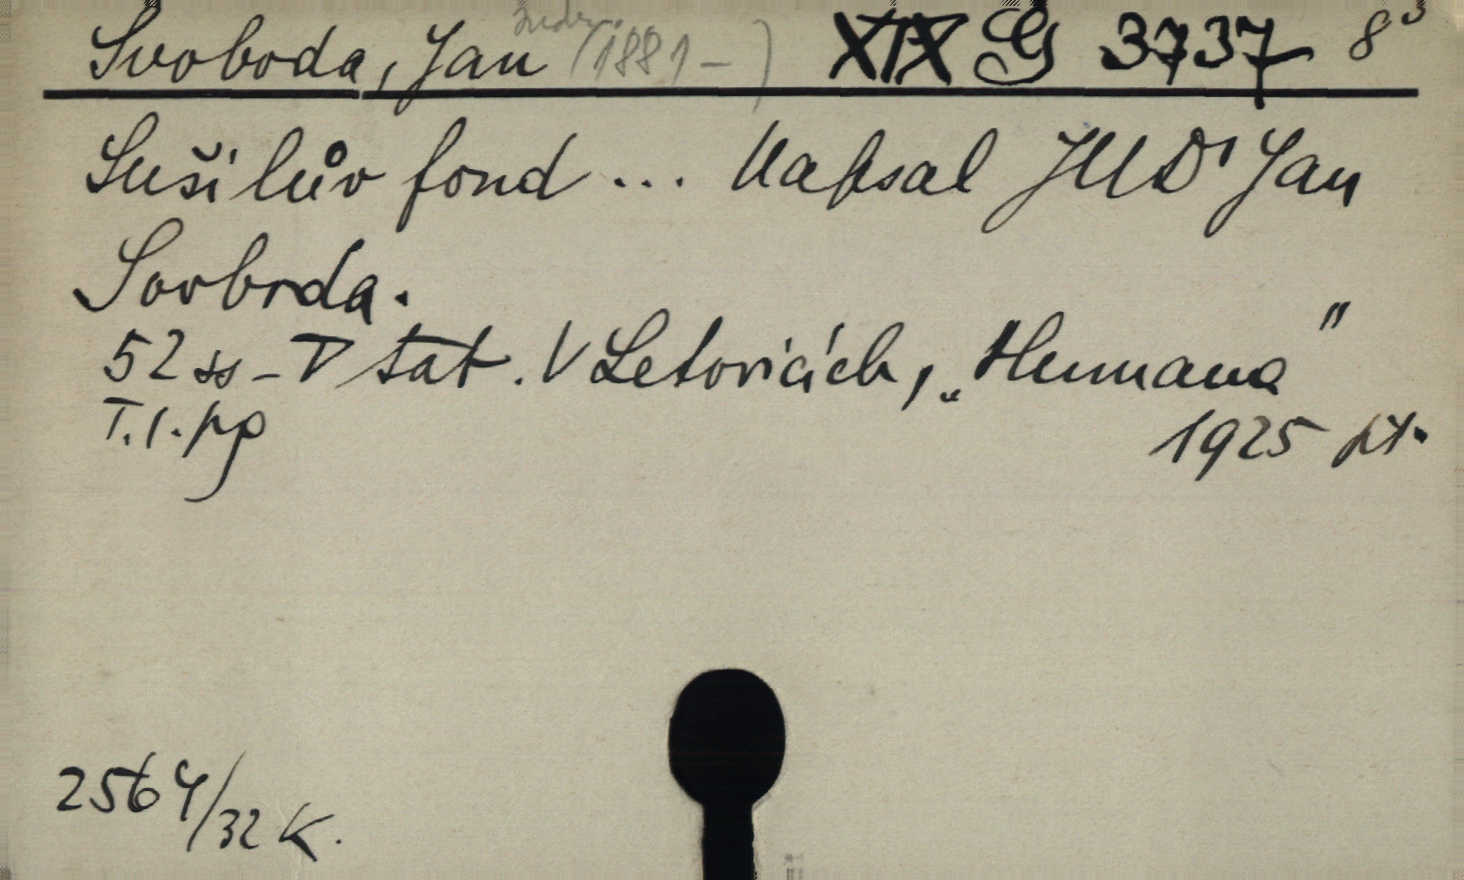 Svoboda, Jan (1881– ) XIX G 3737 8°
Sušilův fond ... Napsal JUDr Jan
Svoboda.
52 ss – V tat. V Letovicích, „Humana"
T. I. pp 1925 př.
2564/32 K.